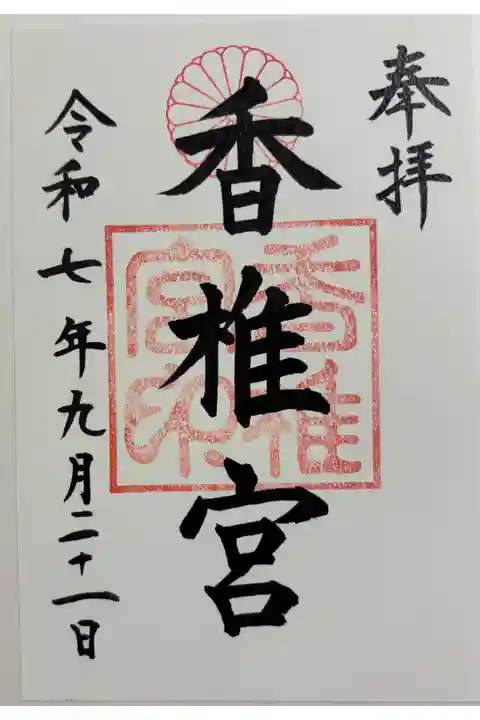 奉拝
香椎宮
香椎宮印
令和七年九月二十一日